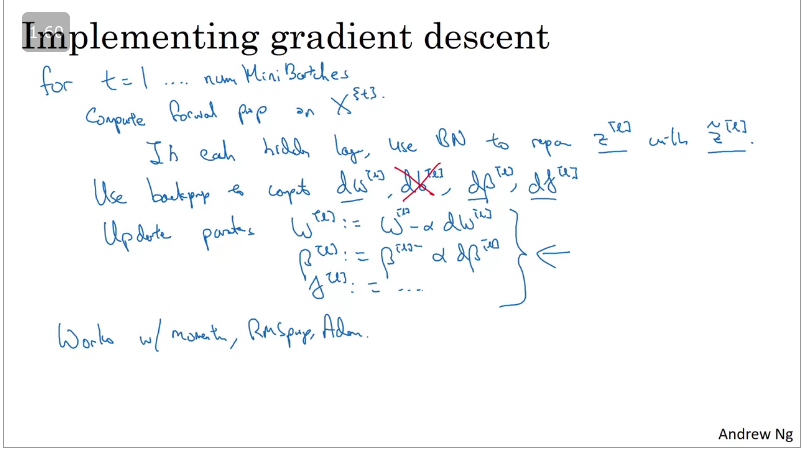 1.60
Implementing gradient descent
for t = 1 .... num Mini Batches
Compute forwal pop on X^{t}.
In each hidden lay, use BN to repa z^[l] with z̃^[l].
Use backprop to compt dw^[l], db^[l], dβ^[l], dγ^[l]
Update parates w^[l] := w^[l] - α dw^[l]
β^[l] := β^[l] - α dβ^[l]
γ^[l] := ...
Works w/ momentm, RMSprop, Adam.
Andrew Ng